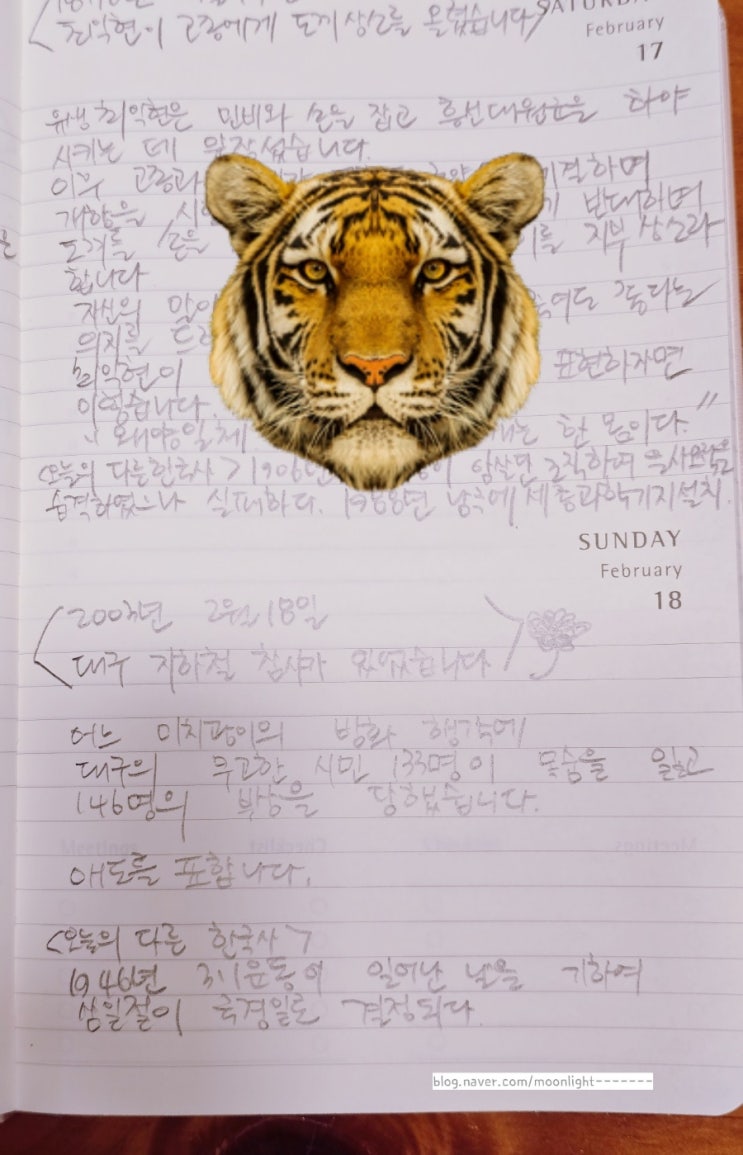 최익현이 고종에게 도끼상소를 올렸습니다
SATURDAY
February
17
유생 최익현은 민비와 손을 잡고 흥선대원군을 하야
시키는 데 앞장섰습니다.
이후 고종과
하며
개항을 반대하며
도끼를 손은 를 지부상소라
합니다
자신의 말이 죽여도 좋다는
의지를
최익현이 표현하자면
이렇습니다.
"왜양일체 는 한 몸이다."
<오늘의 다른 한국사> 1906년 이 암살단 조직하여 을사오적을
습격하였으나 실패하다. 1988년 남극에 세종과학기지 설치.
SUNDAY
February
18
2003년 2월 18일
대구 지하철 참사가 있었습니다
어느 미치광이의 방화 행각에
대구의 무고한 시민 133명이 목숨을 잃고
146명의 부상을 당했습니다.
애도를 표합니다.
<오늘의 다른 한국사>
1946년 3.1운동이 일어난 날을 기하여
삼일절이 국경일로 결정되다.
blog.naver.com/moonlight-------